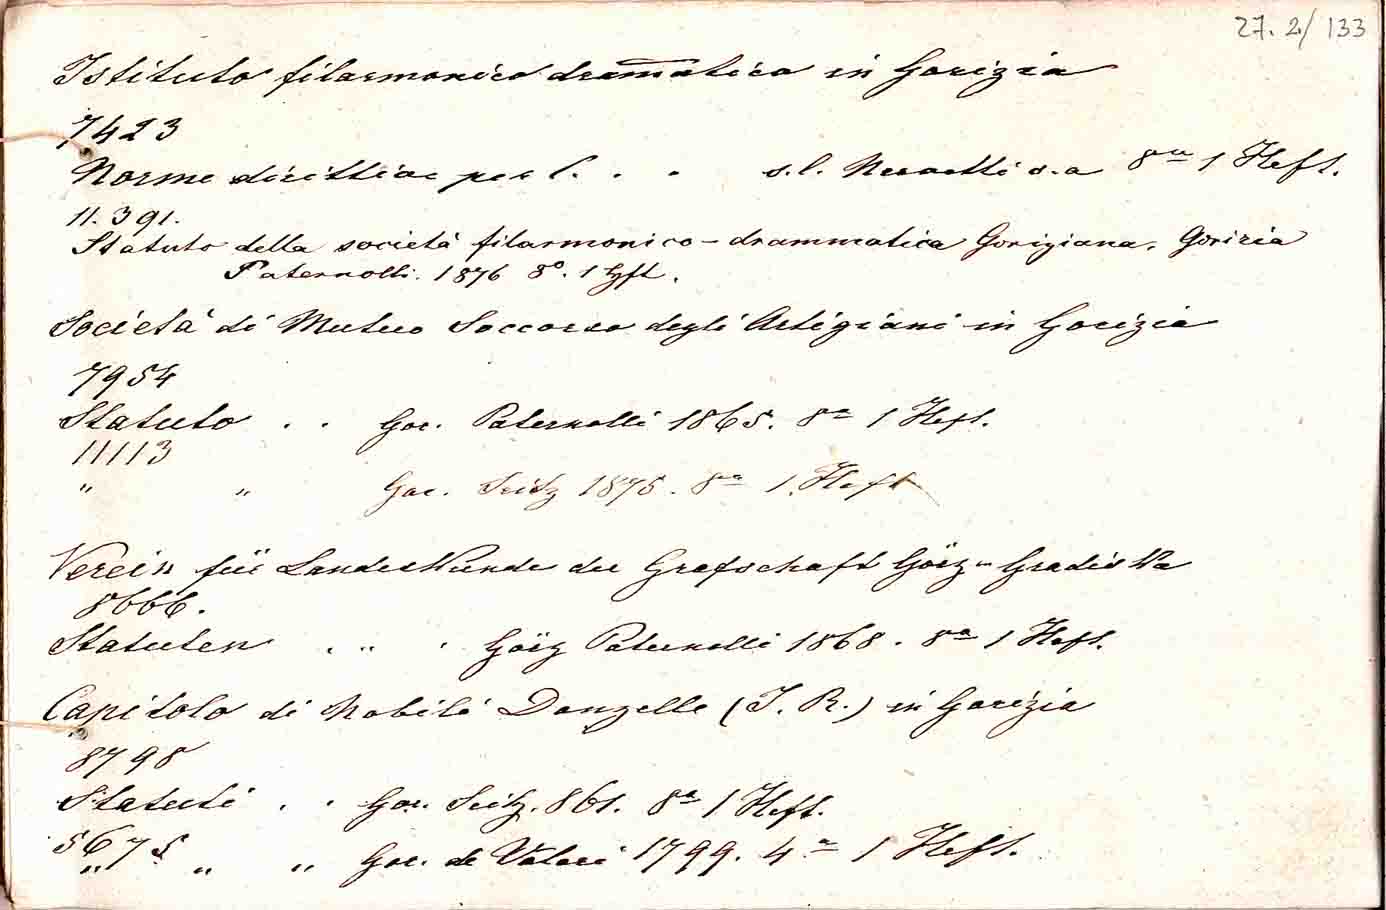 27. 2/133
Istituto filarmonico dram̅atico in Gorizia
7423
Norme direttive per l' . . s. l. s. a 8va 1 Heft.
11.391.
Statuto della società filarmonico-drammatica Goriziana. Gorizia
Paternolli. 1876 8°. 1 Hft.
Società di Mutuo Soccorso degli Artigiani in Gorizia
7954
Statuto . . Gor. Paternolli 1865. 8a 1 Heft.
11113
" " Gor. Seitz 1875. 8va 1. Heft
Verein für Landeskunde der Grafschaft Görz u Gradiska
8666.
Statuten . " . Görz Paternolli 1868. 8a 1 Heft.
Capitolo di Nobili Donzelle (I. R.) in Gorizia
8798
Statuti . . Gor. Seitz. 861. 8a 1 Heft.
5675
" " " Gor. de Valeri 1799. 4a 1 Heft.